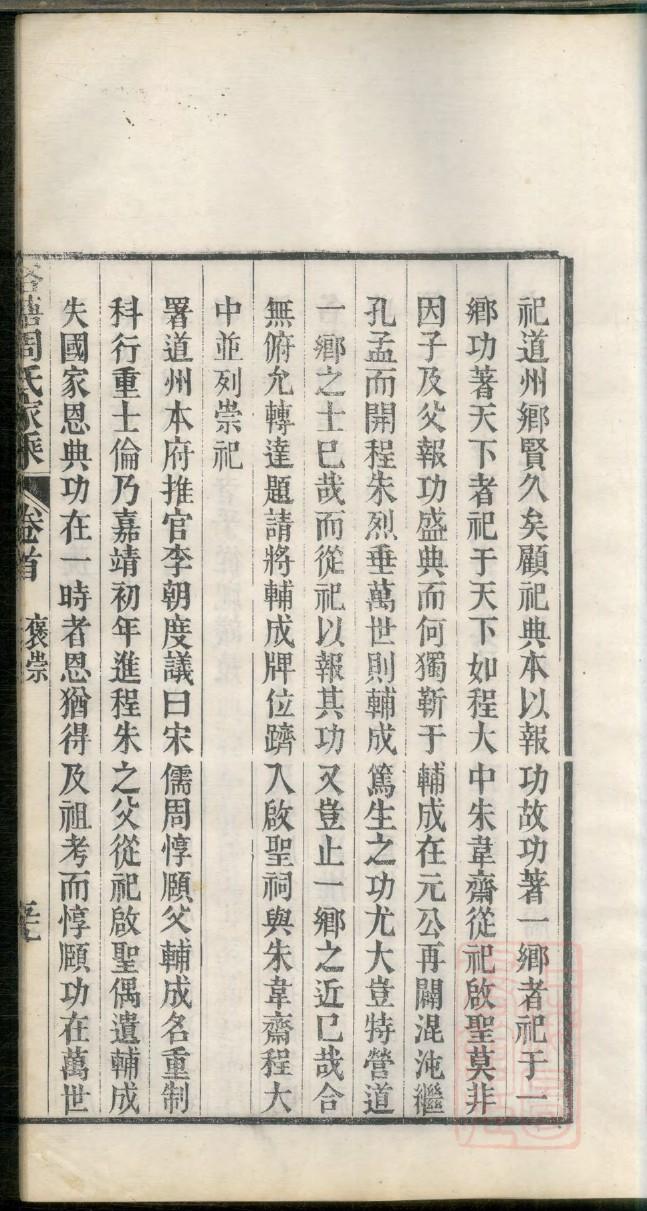 祀道州鄉賢久矣顧祀典本以報功故功著一鄉者祀于一
鄉功著天下者祀于天下如程大中朱韋齋從祀啟聖莫非
因子及父報功盛典而何獨靳于輔成在元公再闢混沌繼
孔孟而開程朱烈垂萬世則輔成篤生之功尤大豈特營道
一鄉之士已哉而從祀以報其功又豈止一鄉之近已哉合
無俯允轉達題請將輔成牌位躋入啟聖祠與朱韋齋程大
中並列崇祀
署道州本府推官李朝度議曰宋儒周惇頤父輔成名重制
科行重士倫乃嘉靖初年進程朱之父從祀啟聖偶遺輔成
失國家恩典功在一時者恩猶得及祖考而惇頤功在萬世
周氏家乘 卷首 褒崇